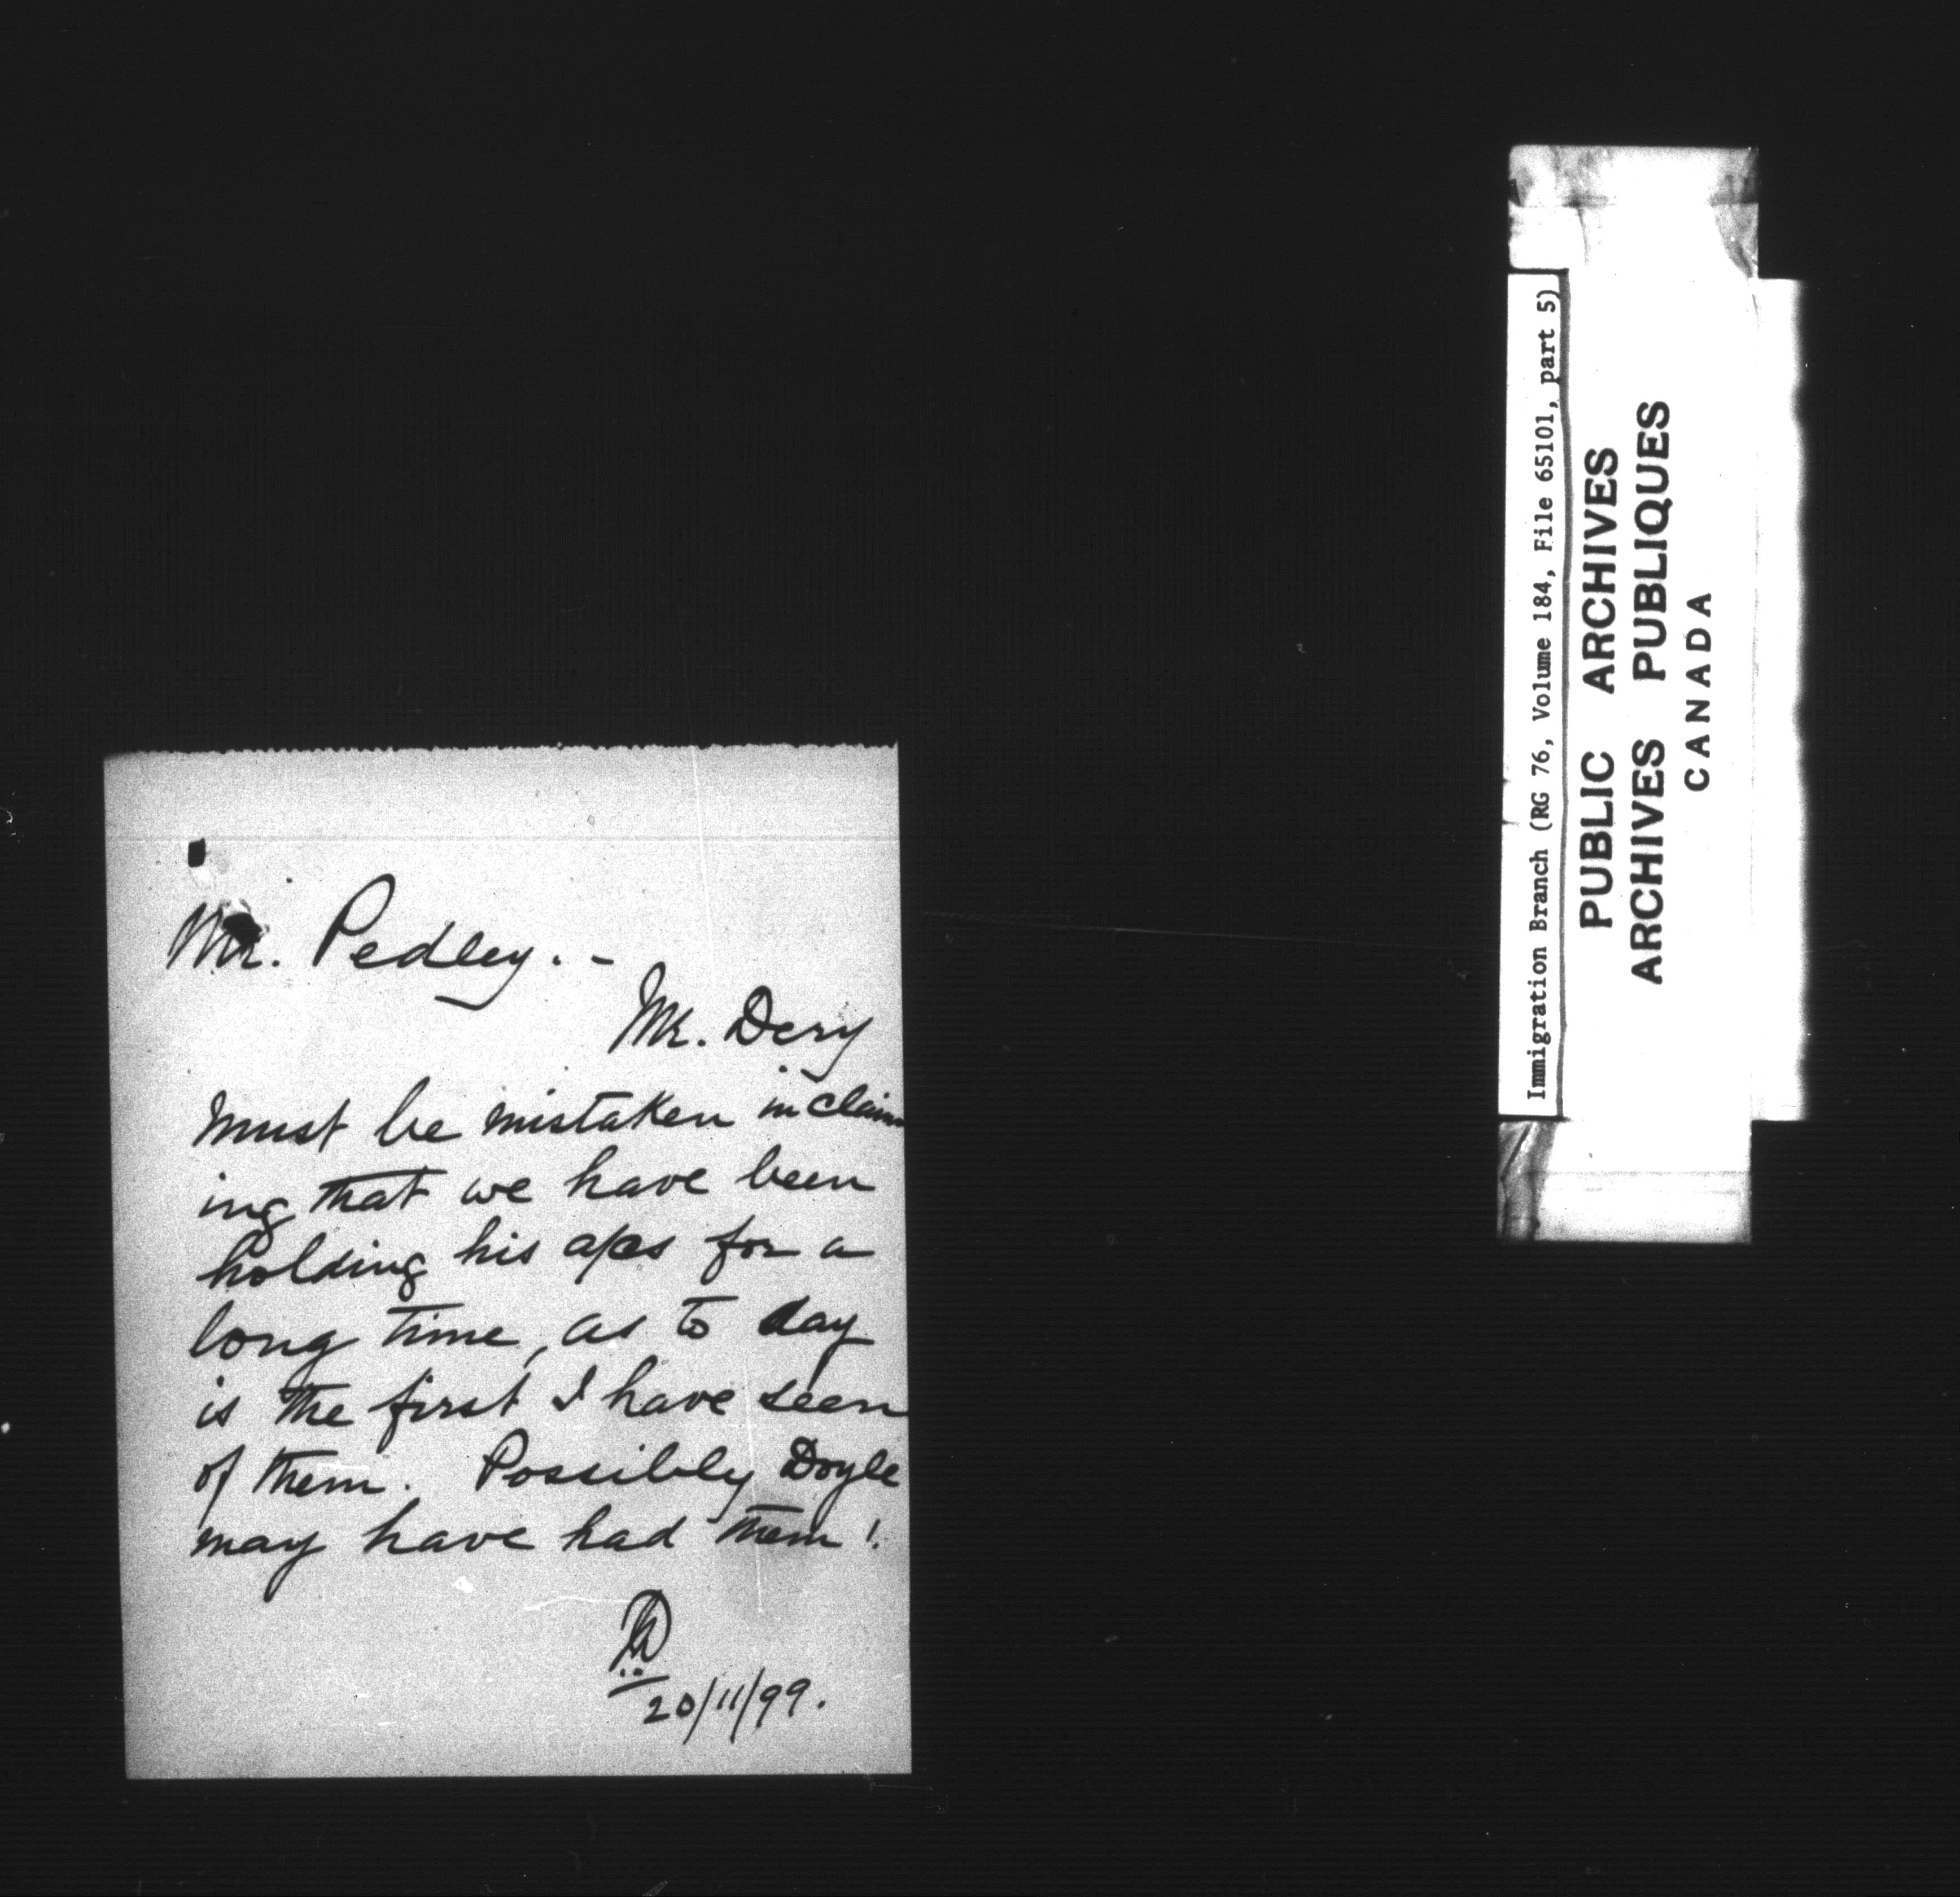 Mr. Pedley. -
Mr. Dery
must be mistaken in claim
ing that we have been
holding his a/cs for a
long time, as to day
is the first I have seen
of them. Possibly Doyle
may have had them!
20/11/99.
Immigration Branch (RG 76, Volume 184, File 65101, part 5)
PUBLIC ARCHIVES
ARCHIVES PUBLIQUES
CANADA